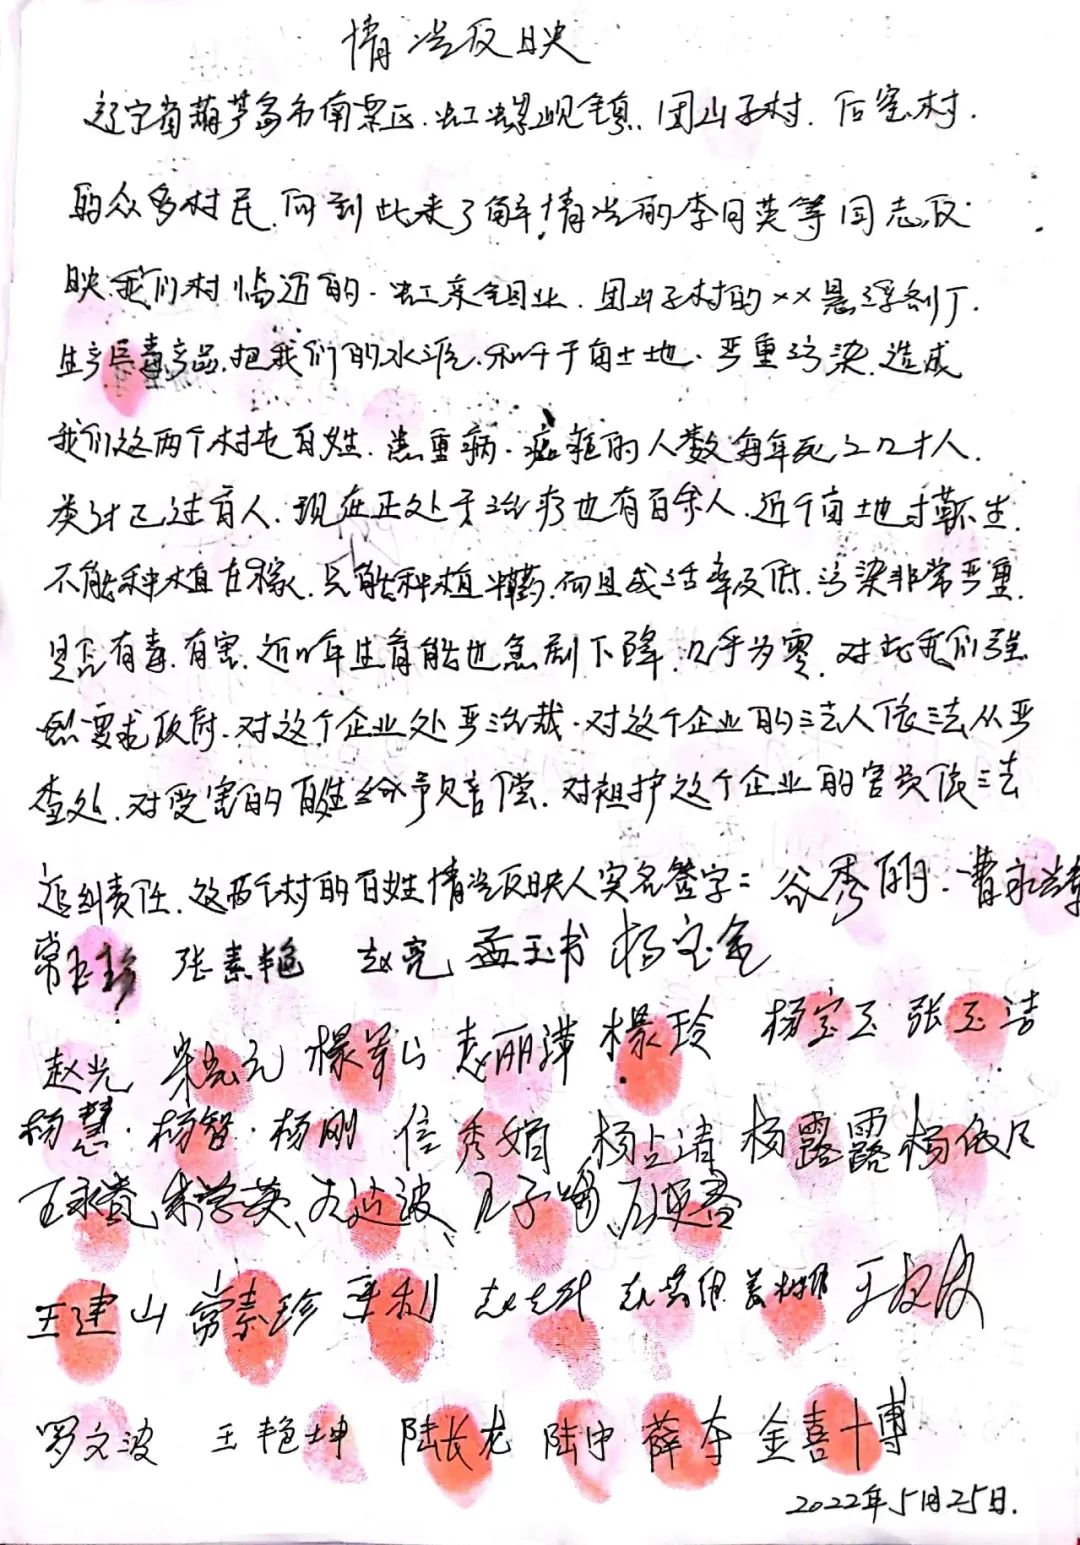 情况反映
辽宁省葫芦岛市南票区.虹螺岘镇.团山子村.后窑村.
的众多村民.向到此来了解情况的李月英等同志反
映我们村临近的.虹亲钼业.团山子村的××悬浮剂厂.
生产巨毒产品.把我们的水源.和千于亩土地.严重污染.造成
我们这两个村屯百姓.患重病.癌症的人数每年死之几十人.
类计已过百人.现在正处于治疗也有百余人.近千亩土地寸草不生.
不能种植庄稼.只能种植中药.而且成活率及低.污染非常严重.
是否有毒.有害.近几年生育能也急剧下降.几乎为零.对此我们强
烈要求政府.对这个企业处严治裁.对这个企业的法人依法从严
查处.对受害的百姓给予赔偿.对袒护这个企业的官员依法
追纠责任.这两个村的百姓情况反映人实名签字:谷秀丽.曹
常玉珍 张素艳 赵亮 孟玉书 杨宝金
赵光 赵丽萍 玲 杨宝玉 张玉洁
杨慧.杨智.杨刚 信秀娟 杨占清 杨露露 杨依凡
王永贵 朱学英、波、王子
王建山 常素珍 辛利
罗文波 王艳坤 陆长龙 陆中 薛冬 金喜博
2022年5月25日.